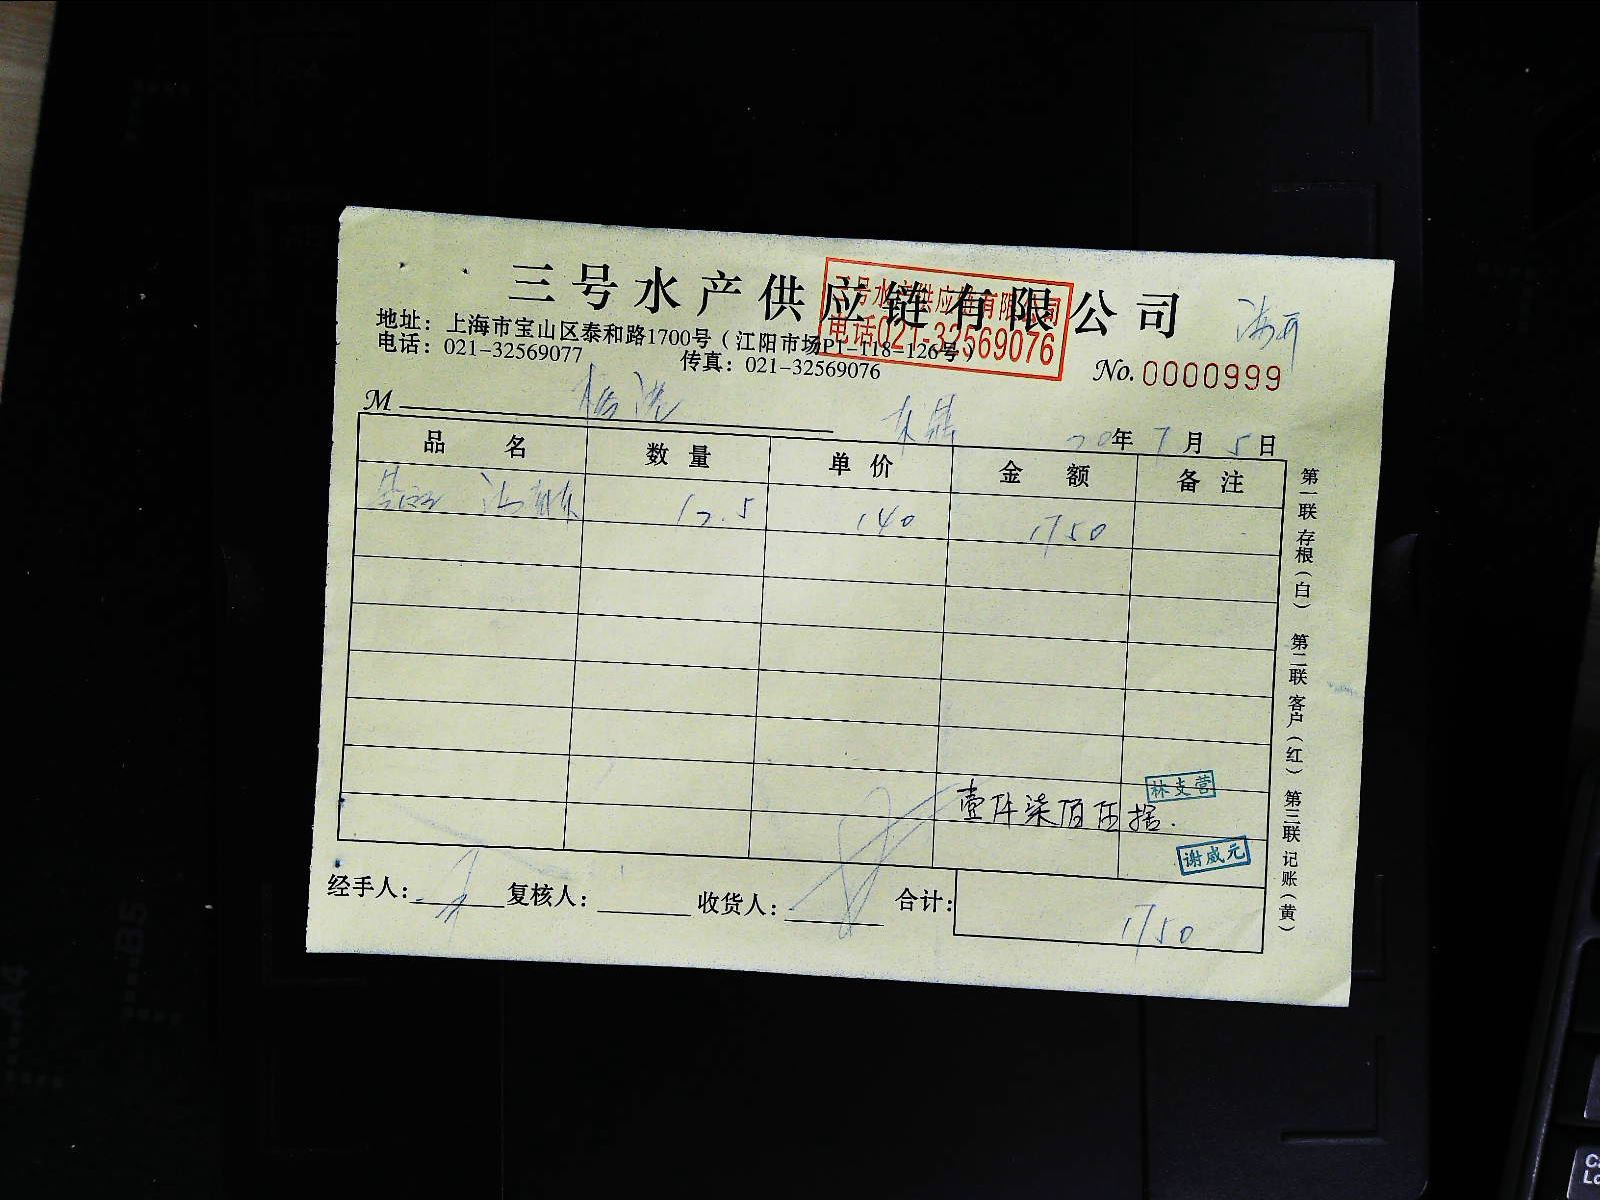 三号水产供应链有限公司
三号水产供应链有限公司
电话021-32569076
地址：上海市宝山区泰和路1700号（江阳市场P1-118-126号）
电话：021-32569077 传真：021-32569076
No. 0000999
M
20年7月5日
品名 数量 单价 金额 备注
12.5 140 1750
林支营
壹仟柒佰伍拾.
谢威元
经手人： 复核人： 收货人： 合计： 1750
第一联 存根（白） 第二联 客户（红） 第三联 记账（黄）
A4
B5